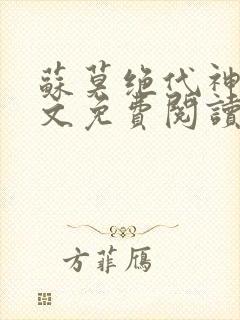 蘇莫绝代神
文免費閱讀
方菲鴈